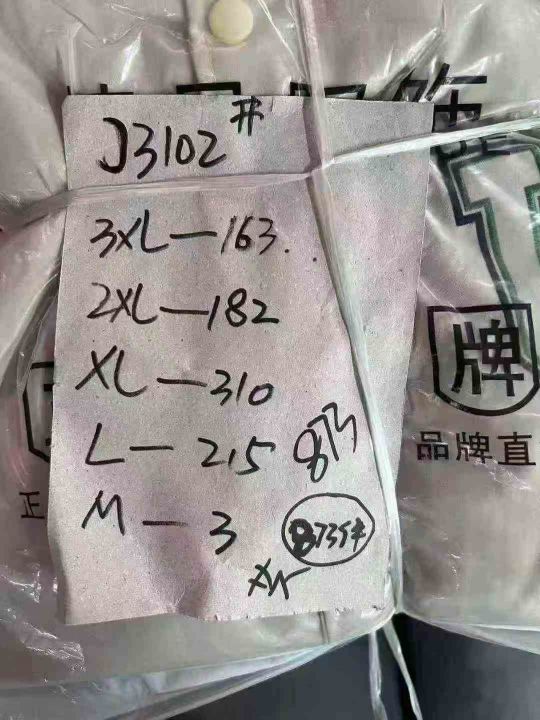 J3102#
3XL—163.
2XL—182
XL—310
L—215
M—3
873件
牌
品牌直
正